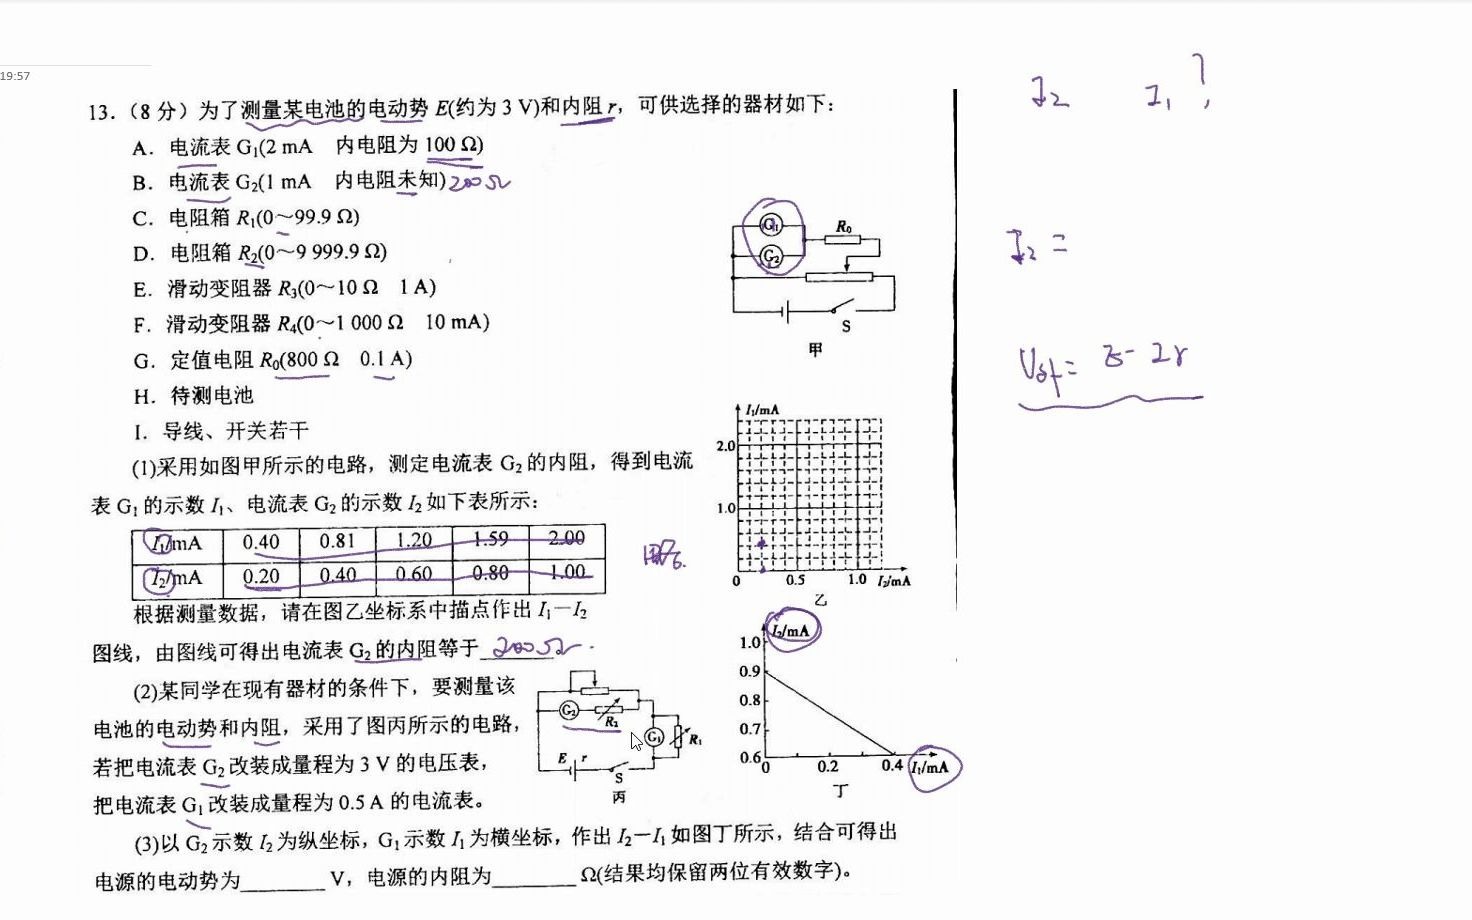 19:57
13.（8 分）为了测量某电池的电动势 E(约为 3 V)和内阻 r，可供选择的器材如下：
A．电流表 G₁(2 mA 内电阻为 100 Ω)
B．电流表 G₂(1 mA 内电阻未知) 200Ω
C．电阻箱 R₁(0～99.9 Ω)
D．电阻箱 R₂(0～9 999.9 Ω)
E．滑动变阻器 R₃(0～10 Ω 1 A)
F．滑动变阻器 R₄(0～1 000 Ω 10 mA)
G．定值电阻 R₀(800 Ω 0.1 A)
H．待测电池
I．导线、开关若干
(1)采用如图甲所示的电路，测定电流表 G₂ 的内阻，得到电流
表 G₁ 的示数 I₁、电流表 G₂ 的示数 I₂ 如下表所示：
I₁/mA 0.40 0.81 1.20 1.59 2.00
I₂/mA 0.20 0.40 0.60 0.80 1.00
根据测量数据，请在图乙坐标系中描点作出 I₁－I₂
图线，由图线可得出电流表 G₂ 的内阻等于 200Ω.
(2)某同学在现有器材的条件下，要测量该
电池的电动势和内阻，采用了图丙所示的电路，
若把电流表 G₂ 改装成量程为 3 V 的电压表，
把电流表 G₁ 改装成量程为 0.5 A 的电流表。
(3)以 G₂ 示数 I₂ 为纵坐标，G₁ 示数 I₁ 为横坐标，作出 I₂－I₁ 如图丁所示，结合可得出
电源的电动势为______V，电源的内阻为______Ω(结果均保留两位有效数字)。
G₁ R₀
G₂
S
甲
I₁/mA
2.0
1.0
0 0.5 1.0 I₂/mA
乙
G₂ R₂
G₁ R₁
E r
S
丙
I₂/mA
1.0
0.9
0.8
0.7
0.6
0 0.2 0.4 I₁/mA
丁
I₂ I₁ ?
I₂ =